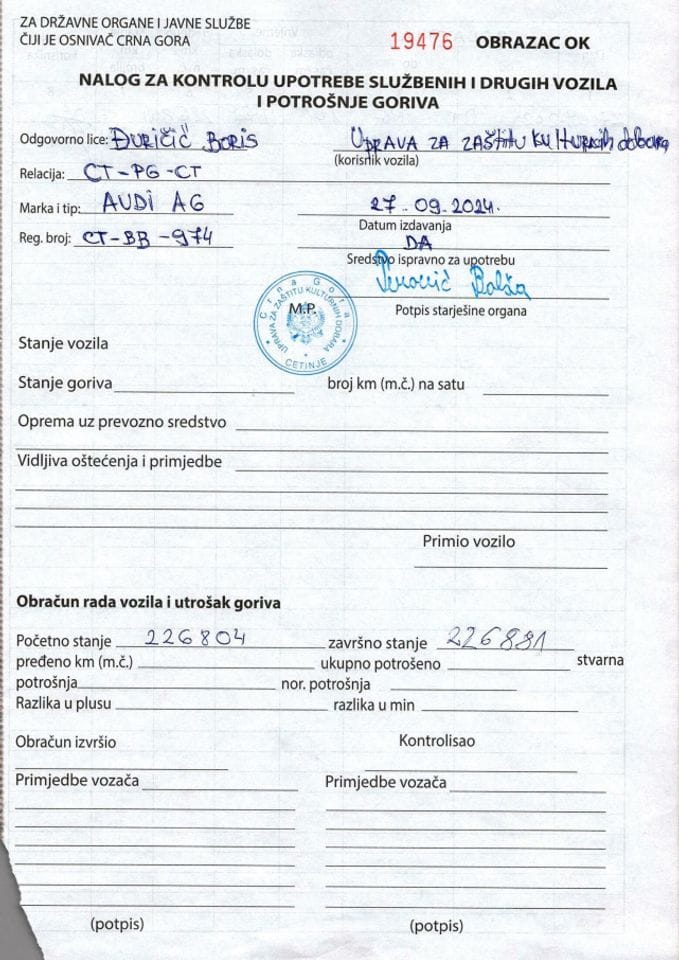 ZA DRŽAVNE ORGANE I JAVNE SLUŽBE
ČIJI JE OSNIVAČ CRNA GORA
19476 OBRAZAC OK
NALOG ZA KONTROLU UPOTREBE SLUŽBENIH I DRUGIH VOZILA
I POTROŠNJE GORIVA
Odgovorno lice: ĐURIČIĆ BORIS UPRAVA ZA ZAŠTITU KULTURNIH dobara
(korisnik vozila)
Relacija: CT-PG-CT
Marka i tip: AUDI AG 27. 09. 2024.
Datum izdavanja
Reg. broj: CT-BB-974 DA
Sredstvo ispravno za upotrebu
Potpis starješine organa
M.P.
Crna Gora
UPRAVA ZA ZAŠTITU KULTURNIH DOBARA
CETINJE
Stanje vozila
Stanje goriva broj km (m.č.) na satu
Oprema uz prevozno sredstvo
Vidljiva oštećenja i primjedbe
Primio vozilo
Obračun rada vozila i utrošak goriva
Početno stanje 226804 završno stanje 226881
pređeno km (m.č.) ukupno potrošeno stvarna
potrošnja nor. potrošnja
Razlika u plusu razlika u min
Obračun izvršio Kontrolisao
Primjedbe vozača Primjedbe vozača
(potpis) (potpis)